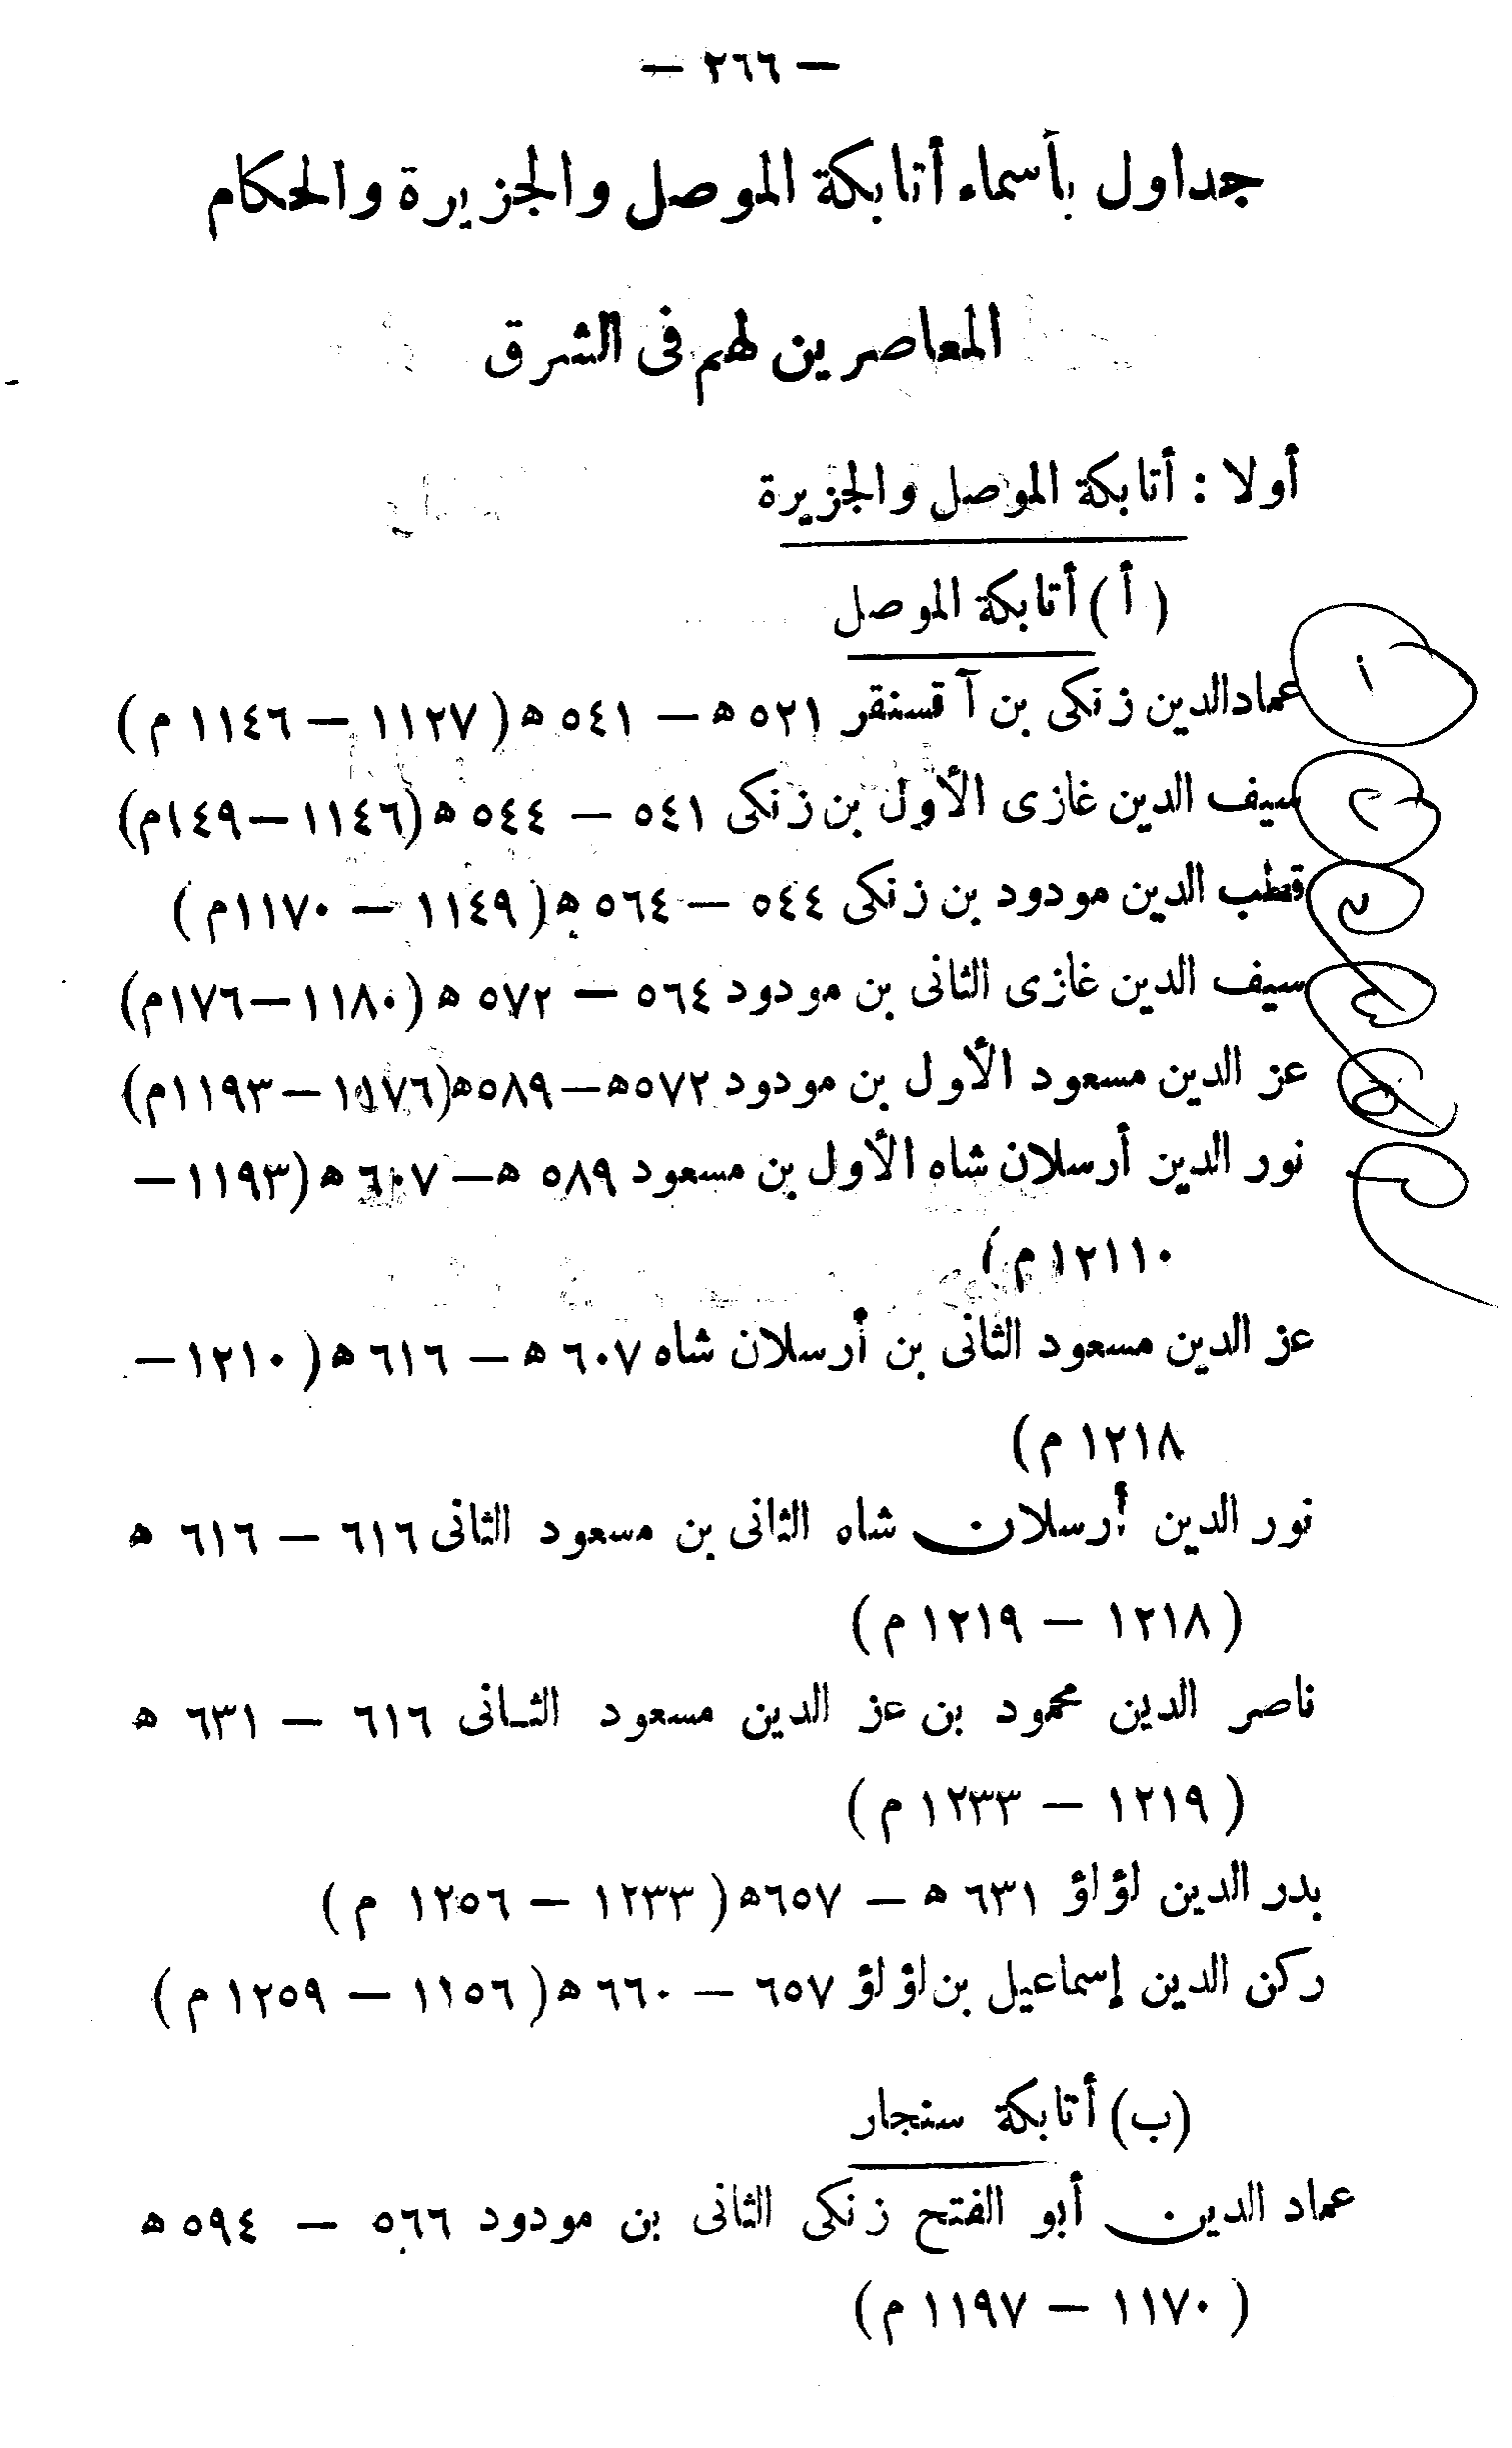 — ٢٦٦ —
جداول بأسماء أتابكة الموصل والجزيرة والحكام
المعاصرين لهم فى الشرق
أولا : أتابكة الموصل والجزيرة
( أ ) أتابكة الموصل
١ عمادالدين زنكى بن آ قسنقر ٥٢١ ه — ٥٤١ ه ( ١١٢٧ — ١١٤٦ م )
٢ سيف الدين غازى الأول بن زنكى ٥٤١ — ٥٤٤ ه (١١٤٦—١٤٩م)
قطب الدين مودود بن زنكى ٥٤٤ — ٥٦٤ ه ( ١١٤٩ — ١١٧٠م )
سيف الدين غازى الثانى بن مودود ٥٦٤ — ٥٧٢ ه (١١٨٠—١٧٦م)
عز الدين مسعود الأول بن مودود ٥٧٢ه—٥٨٩ه (١١٧٦—١١٩٣م)
نور الدين أرسلان شاه الأول بن مسعود ٥٨٩ ه— ٦٠٧ ه (١١٩٣—
١٢١١٠م )
عز الدين مسعود الثانى بن أرسلان شاه ٦٠٧ ه— ٦١٦ ه ( ١٢١٠—
١٢١٨ م )
نور الدين أرسلان شاه الثانى بن مسعود الثانى ٦١٦ — ٦١٦ ه
( ١٢١٨ — ١٢١٩ م )
ناصر الدين محمود بن عز الدين مسعود الثانى ٦١٦ — ٦٣١ ه
( ١٢١٩ — ١٢٣٣ م )
بدر الدين لؤلؤ ٦٣١ ه — ٦٥٧ه ( ١٢٣٣ — ١٢٥٦ م )
ركن الدين إسماعيل بن لؤلؤ ٦٥٧ — ٦٦٠ ه ( ١١٥٦ — ١٢٥٩ م )
(ب) أتابكة سنجار
عماد الدين أبو الفتح زنكى الثانى بن مودود ٥٦٦ — ٥٩٤ ه
( ١١٧٠ — ١١٩٧ م )